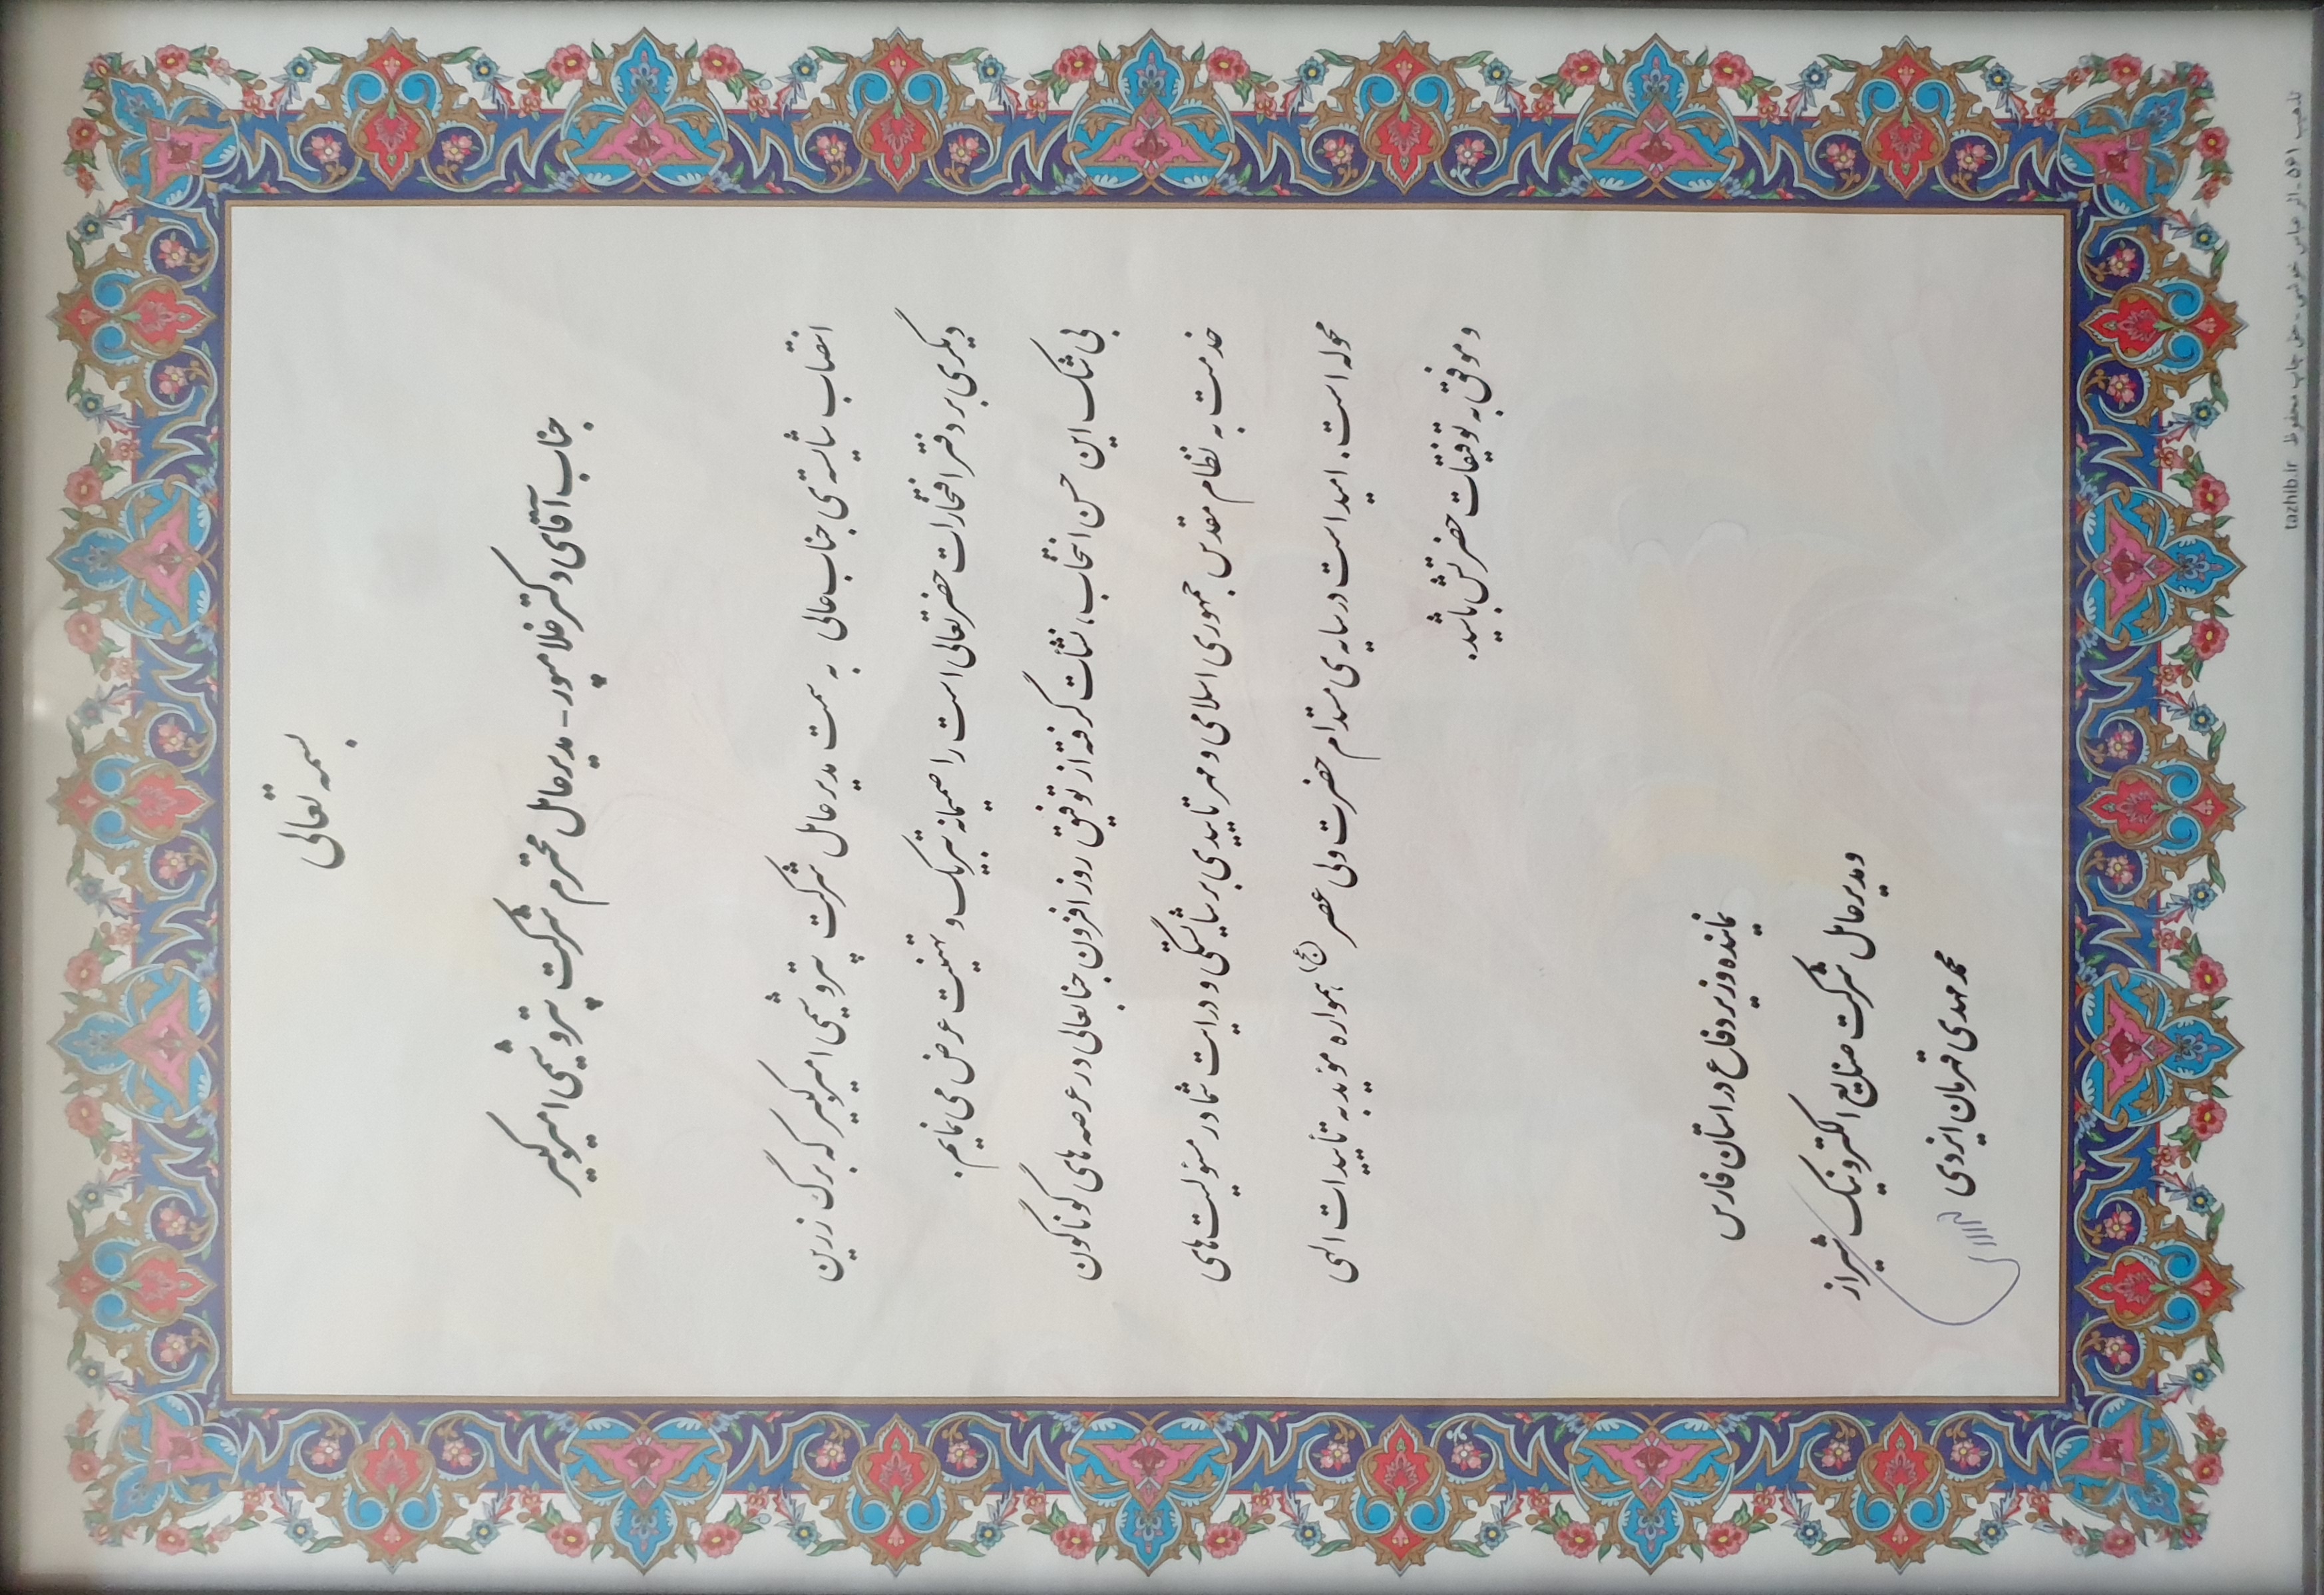 بسمه تعالی
جناب آقای دکتر غلامپور - مدیرعامل محترم شرکت پتروشیمی امیرکبیر
انتصاب شایسته‌ی جناب عالی به سمت مدیرعامل شرکت پتروشیمی امیرکبیر که برگ زرین
دیگری بر دفتر افتخارات حضرتعالی است را صمیمانه تبریک و تهنیت عرض می نمایم.
بی شک این حسن انتخاب، نشأت گرفته از توفیق روز افزون جنابعالی در عرصه های گوناگون
خدمت به نظام مقدس جمهوری اسلامی و مهر تاییدی بر شایستگی و درایت شما در مسؤلیت های
محوله است. امید است در سایه ی مستدام حضرت ولی عصر (عج)، همواره مؤید به تأییدات الهی
و موفق به توفیقات حضرتش باشید.
نماینده وزیر دفاع در استان فارس
و مدیرعامل شرکت صنایع الکترونیک شیراز
محمد مهدی قهرمان ایزدی
تذهیب ۵۶۱ - اثر عباس خوشی - حق چاپ محفوظ tazhib.ir